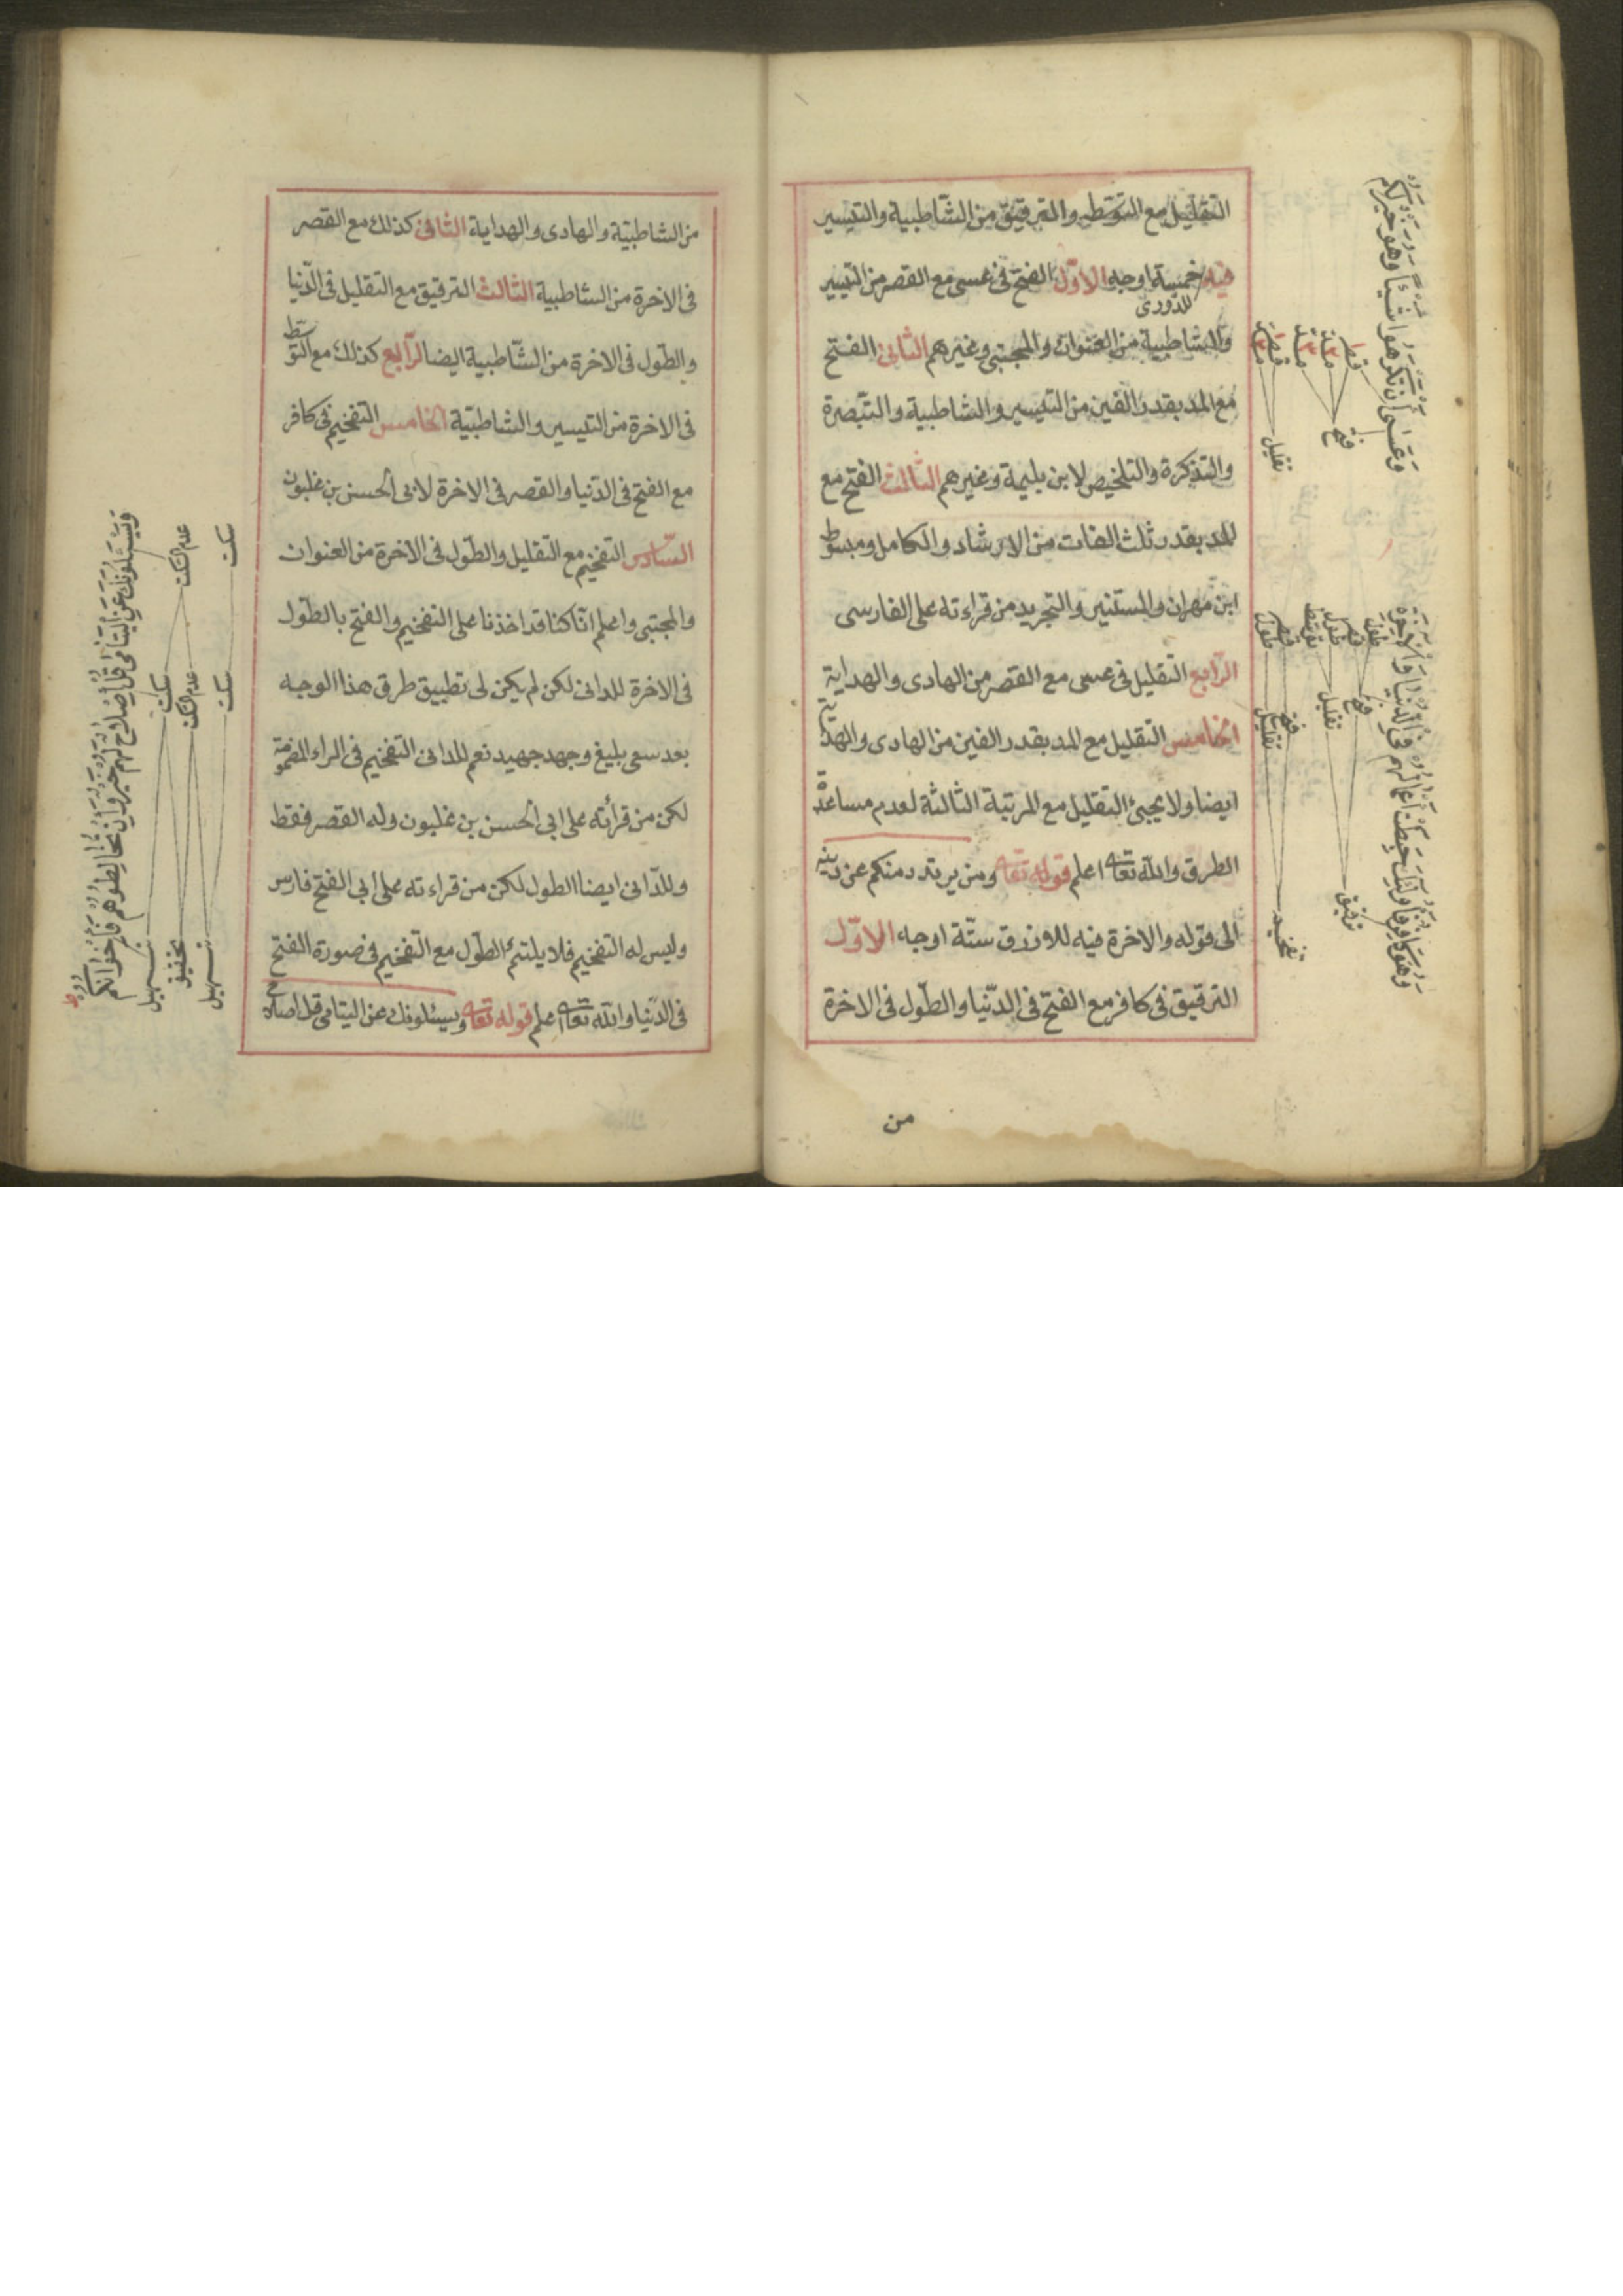 التقليل مع التوسط والترقيق من الشاطبية والتيسير
فيه خمسة اوجه الاوّل الفتح فى عسى مع القصر من التيسير
للدورى
والشاطبية من العنوان والمجتبى وغيرهم الثانى الفتح
مع المد بقدر الفين من التيسير والشاطبية والتبصرة
والتذكرة والتلخيص لابن بليمة وغيرهم الثالث الفتح مع
المد بقدر ثلث الفات من الارشاد والكامل ومبسوط
ابن مهران والمستنير والتجريد من قراءته على الفارسى
الرابع التقليل فى عسى مع القصر من الهادى والهداية
الخامس التقليل مع المد بقدر الفين من الهادى والهداية
ايضا ولا يجيئ التقليل مع المرتبة الثالثة لعدم مساعدة
الطرق والله تعا اعلم قوله تعا ومن يرتدد منكم عن دينه
الى قوله والاخرة فيه للازرق ستّة اوجه الاوّل
الترقيق فى كافر مع الفتح فى الدّنيا والطّول فى الاخرة
من
وعسى ان تكرهوا شيئا وهو خير لكم
قصر
فتح
تقليل
وهو كافر فاولئك حبطت اعمالهم فى الدنيا والاخرة
طول
قصر
طول
توسط
قصر
طول
فتح
تقليل
فتح
تقليل
ترقيق
تفخيم
من الشاطبيّة والهادى والهداية الثانى كذلك مع القصر
فى الاخرة من الشاطبية الثالث الترقيق مع التقليل فى الدّنيا
والطّول فى الاخرة من الشّاطبية ايضا الرّابع كذلك مع التوسّط
فى الاخرة من التيسير والشاطبيّة الخامس التفخيم فى كافر
مع الفتح فى الدّنيا والقصر فى الاخرة لابى الحسن بن غلبون
السّادس التفخيم مع التقليل والطّول فى الاخرة من العنوان
والمجتبى واعلم انّا كنا قد اخذنا على التفخيم والفتح بالطّول
فى الاخرة للدانى لكن لم يكن لى تطبيق طرق هذا الوجه
بعد سعى بليغ وجهد جهيد نعم للدانى التفخيم فى الراء المضمومة
لكن من قرائته على ابى الحسن بن غلبون وله القصر فقط
وللدّانى ايضا الطول لكن من قراءته على ابى الفتح فارس
وليس له التفخيم فلا يلتئم الطّول مع التفخيم فى صورة الفتح
فى الدّنيا والله تعا اعلم قوله تعا ويسئلونك عن اليتامى قل اصلاح
ويسئلونك عن اليتامى قل اصلاح لهم خير وان تخالطوهم فاخوانكم
سكت
عدم السكت
سكت
عدم السكت
سكت
تسهيل
تحقيق
تسهيل